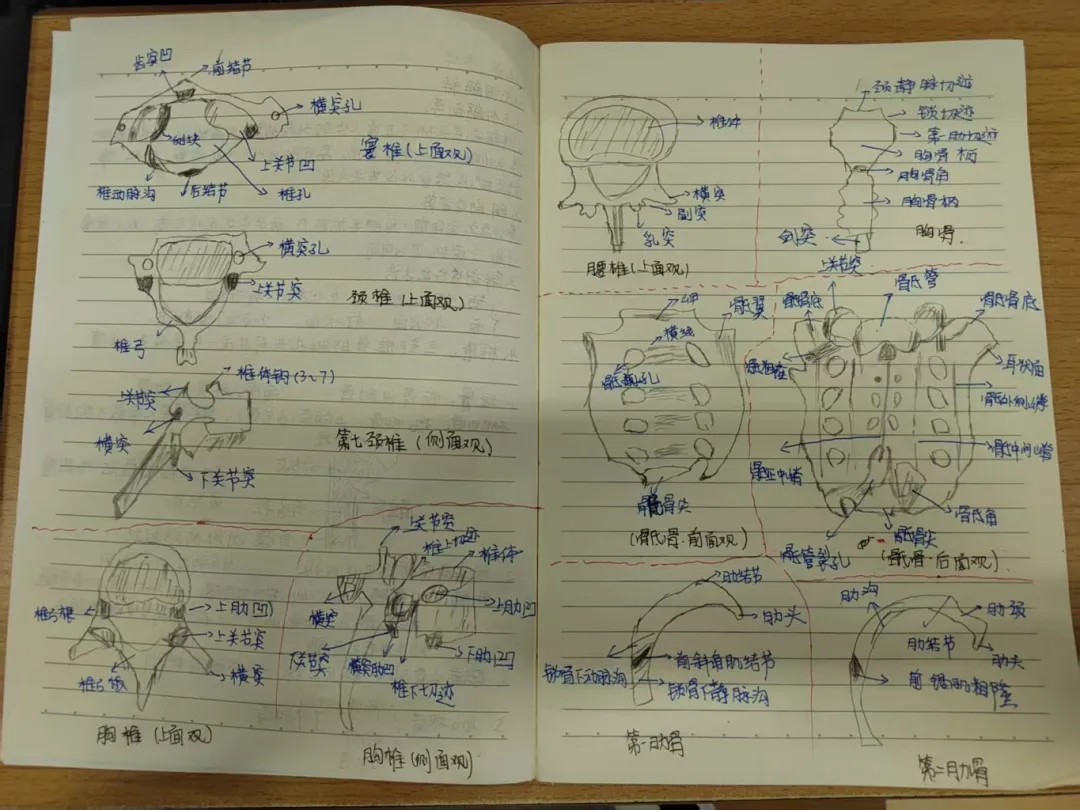 齿突凹
前结节
横突孔
侧块
寰椎(上面观)
上关节凹
椎动脉沟
后结节
椎孔
横突孔
上关节突
颈椎(上面观)
椎弓
椎体钩(3~7)
上关节突
横突
第七颈椎(侧面观)
下关节突
上肋凹
椎弓根
上关节突
横突
椎弓板
胸椎(上面观)
上关节突
椎上切迹
椎体
横突
上肋凹
下关节突
横突肋凹
下肋凹
椎下切迹
胸椎(侧面观)
椎体
横突
副突
乳突
腰椎(上面观)
颈静脉切迹
锁切迹
第一肋切迹
胸骨柄
胸骨角
胸骨柄
剑突
胸骨
上关节突
岬
骶翼
横线
骶前孔
骶骨尖
(骶骨·前面观)
骶骨底
骶管
骶骨底
耳状面
骶外侧嵴
骶中间嵴
骶正中嵴
骶角
骶骨尖
骶管裂孔
(骶骨-后面观)
肋结节
肋头
前斜角肌结节
锁骨下动脉沟
锁骨下静脉沟
第一肋骨
肋沟
肋颈
肋结节
肋头
前锯肌粗隆
第二肋骨